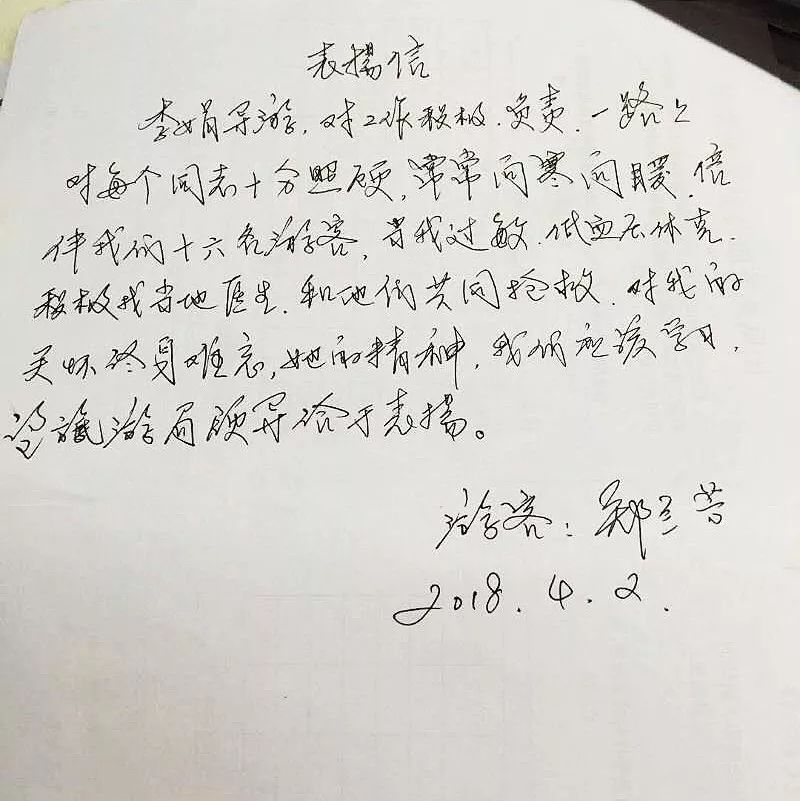 表揚信
李娟导游,对工作积极、负责,一路上
对每个同志十分照顾,常常问寒问暖,倍
伴我们十六名游客,当我过敏、低血压休克,
积极找当地医生,和他们共同抢救,对我的
关怀终身难忘,她的精神,我们应该学习,
望旅游局领导给于表揚。
游客:郑兰
2018.4.2.